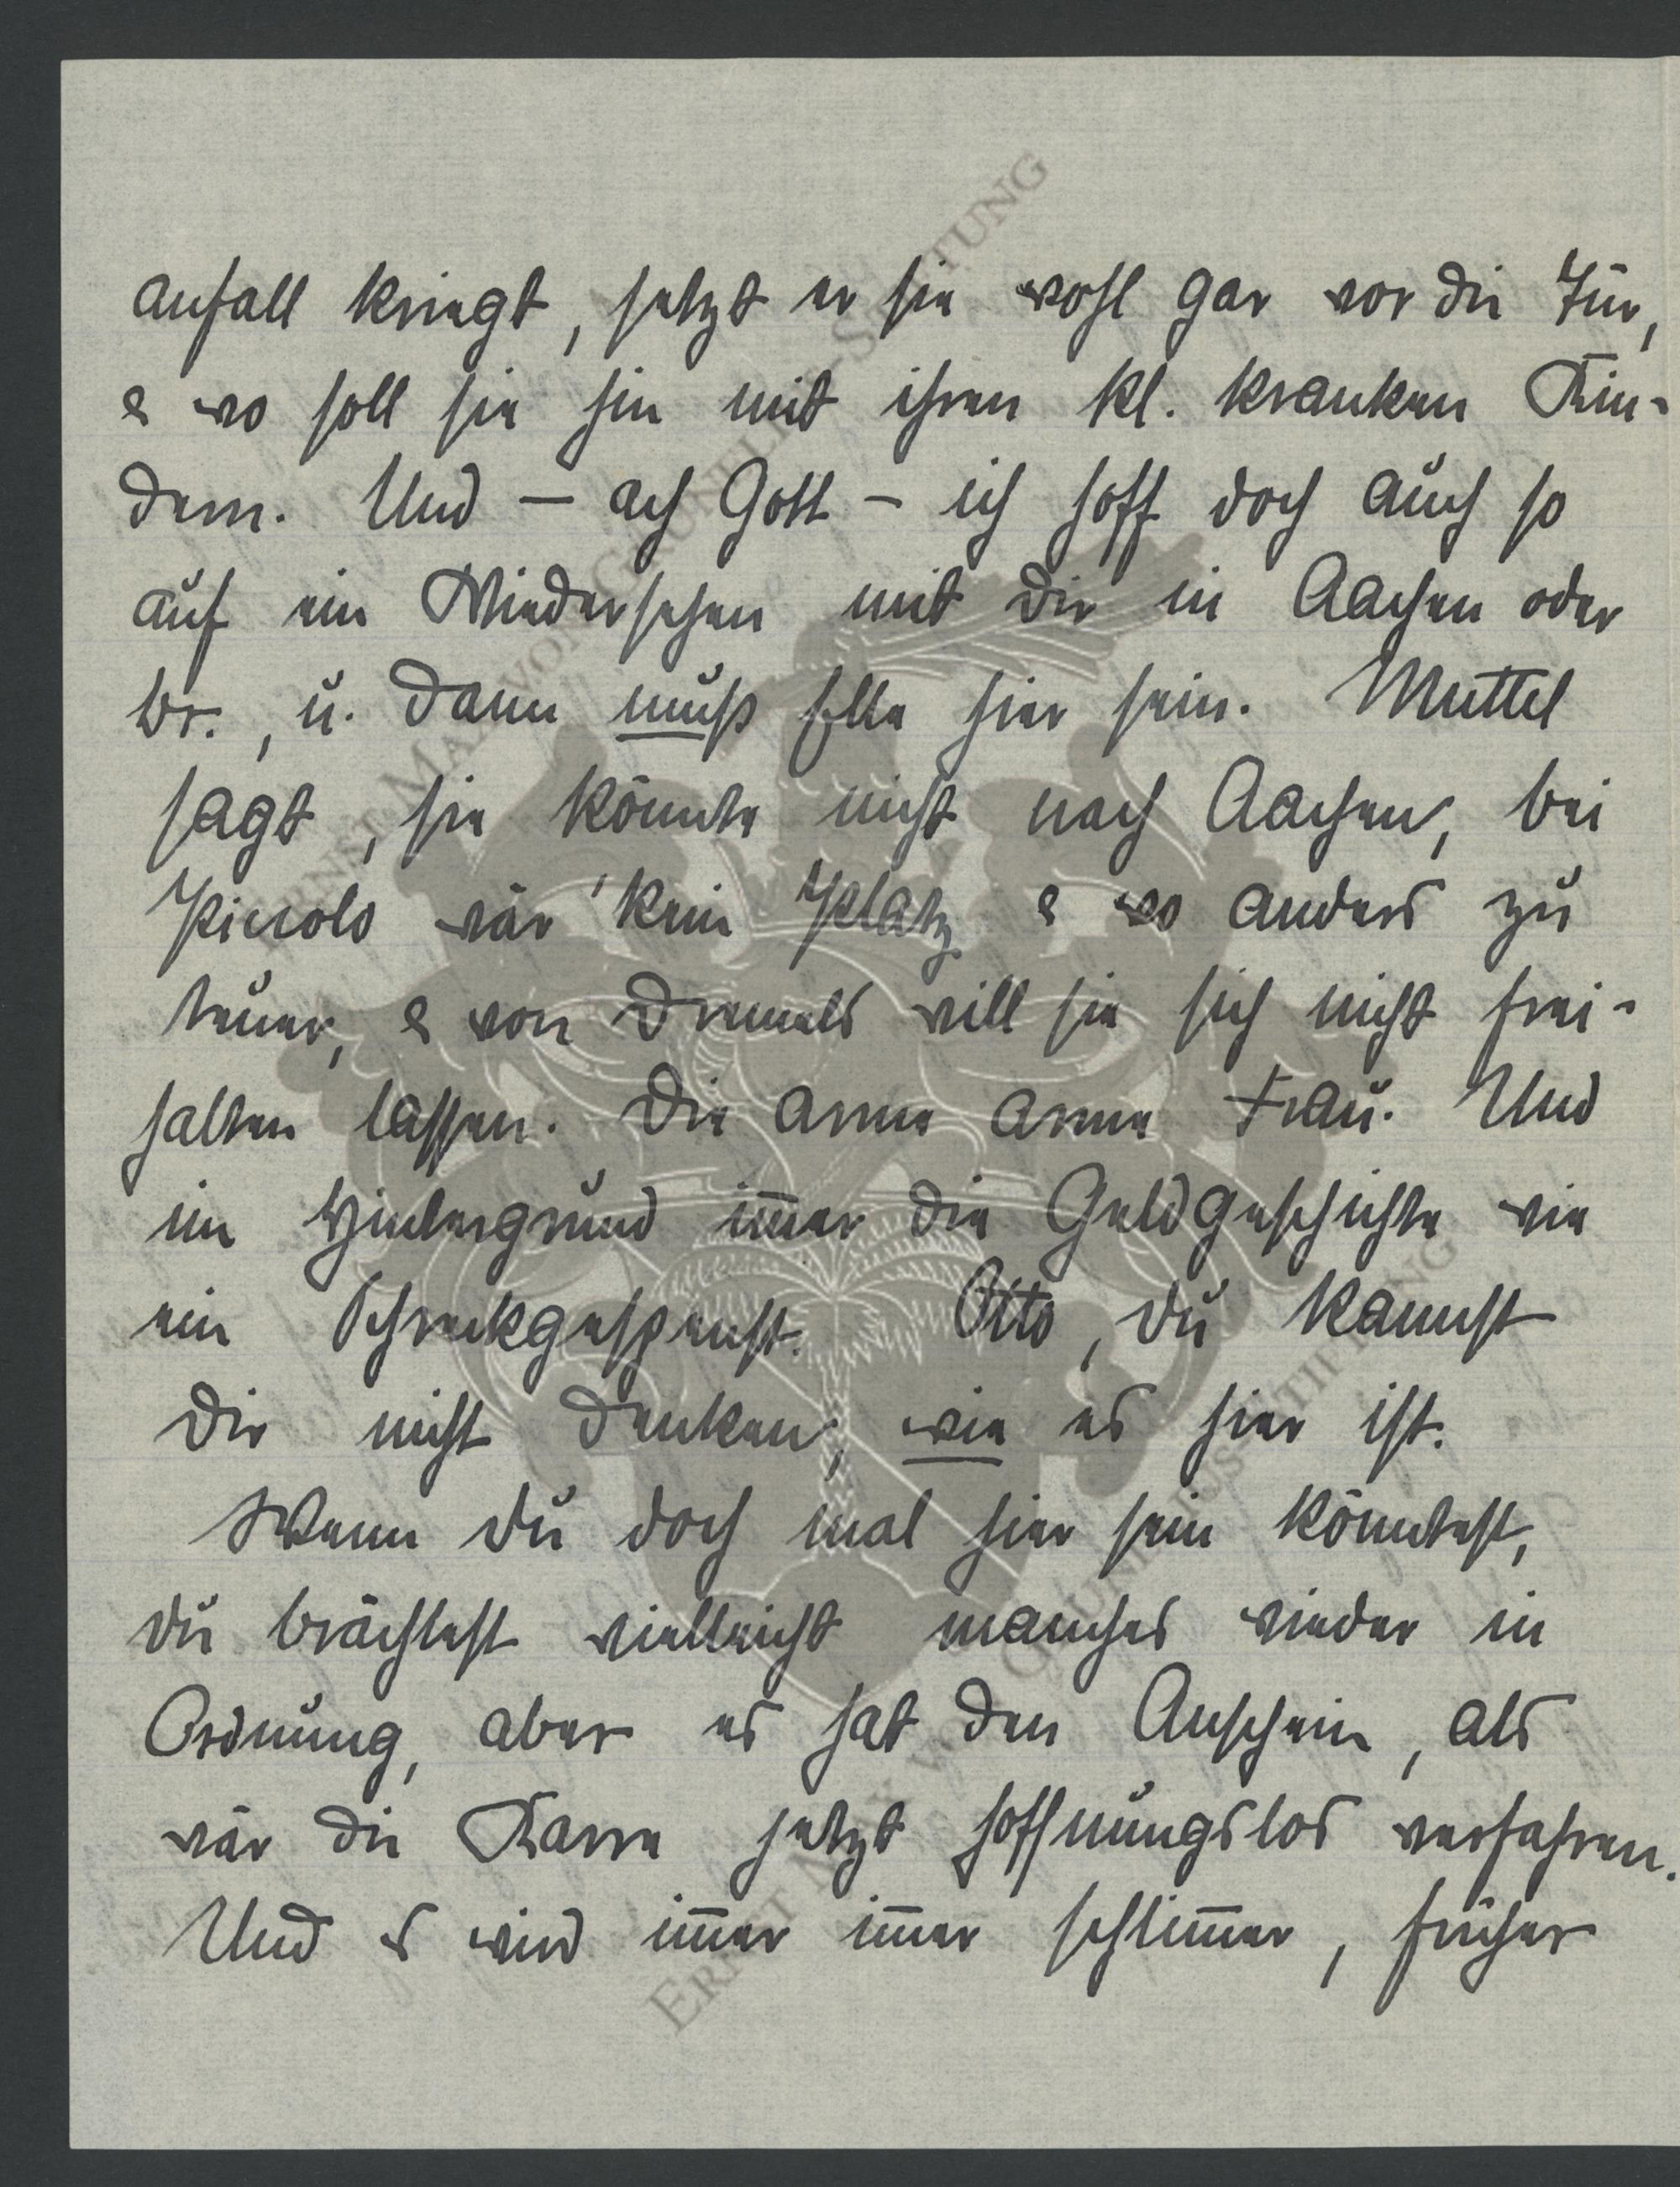 anfall kriegt, setzt er sie wohl gar vor die Tür,
& wo soll sie hin mit ihren kl. kranken Kin-
dern. Und – ach Gott – ich hoff doch auch so
auf ein Wiedersehen mit dir in Aachen oder
Br., u. dann muß Ella hier sein. Muttel
sagt, sie könnte nicht nach Aachen, bei
Piccolo wär' kein Platz & wo anders zu
teuer, & von Dremels will sie sich nicht frei-
halten lassen. Die arme arme Frau. Und
im Hintergrund im̅er die Geldgeschichte wie
ein Schreckgespenst. Otto, du kannst
dir nicht denken, wie es hier ist.
Wenn du doch mal hier sein könntest,
du brächtest vielleicht manches wieder in
Ordnung, aber es hat den Anschein, als
wär die Karre jetzt hoffnungslos verfahren.
Und es wird im̅er im̅er schlim̅er, früher
ERNST MAX VON GRUNELIUS-STIFTUNG